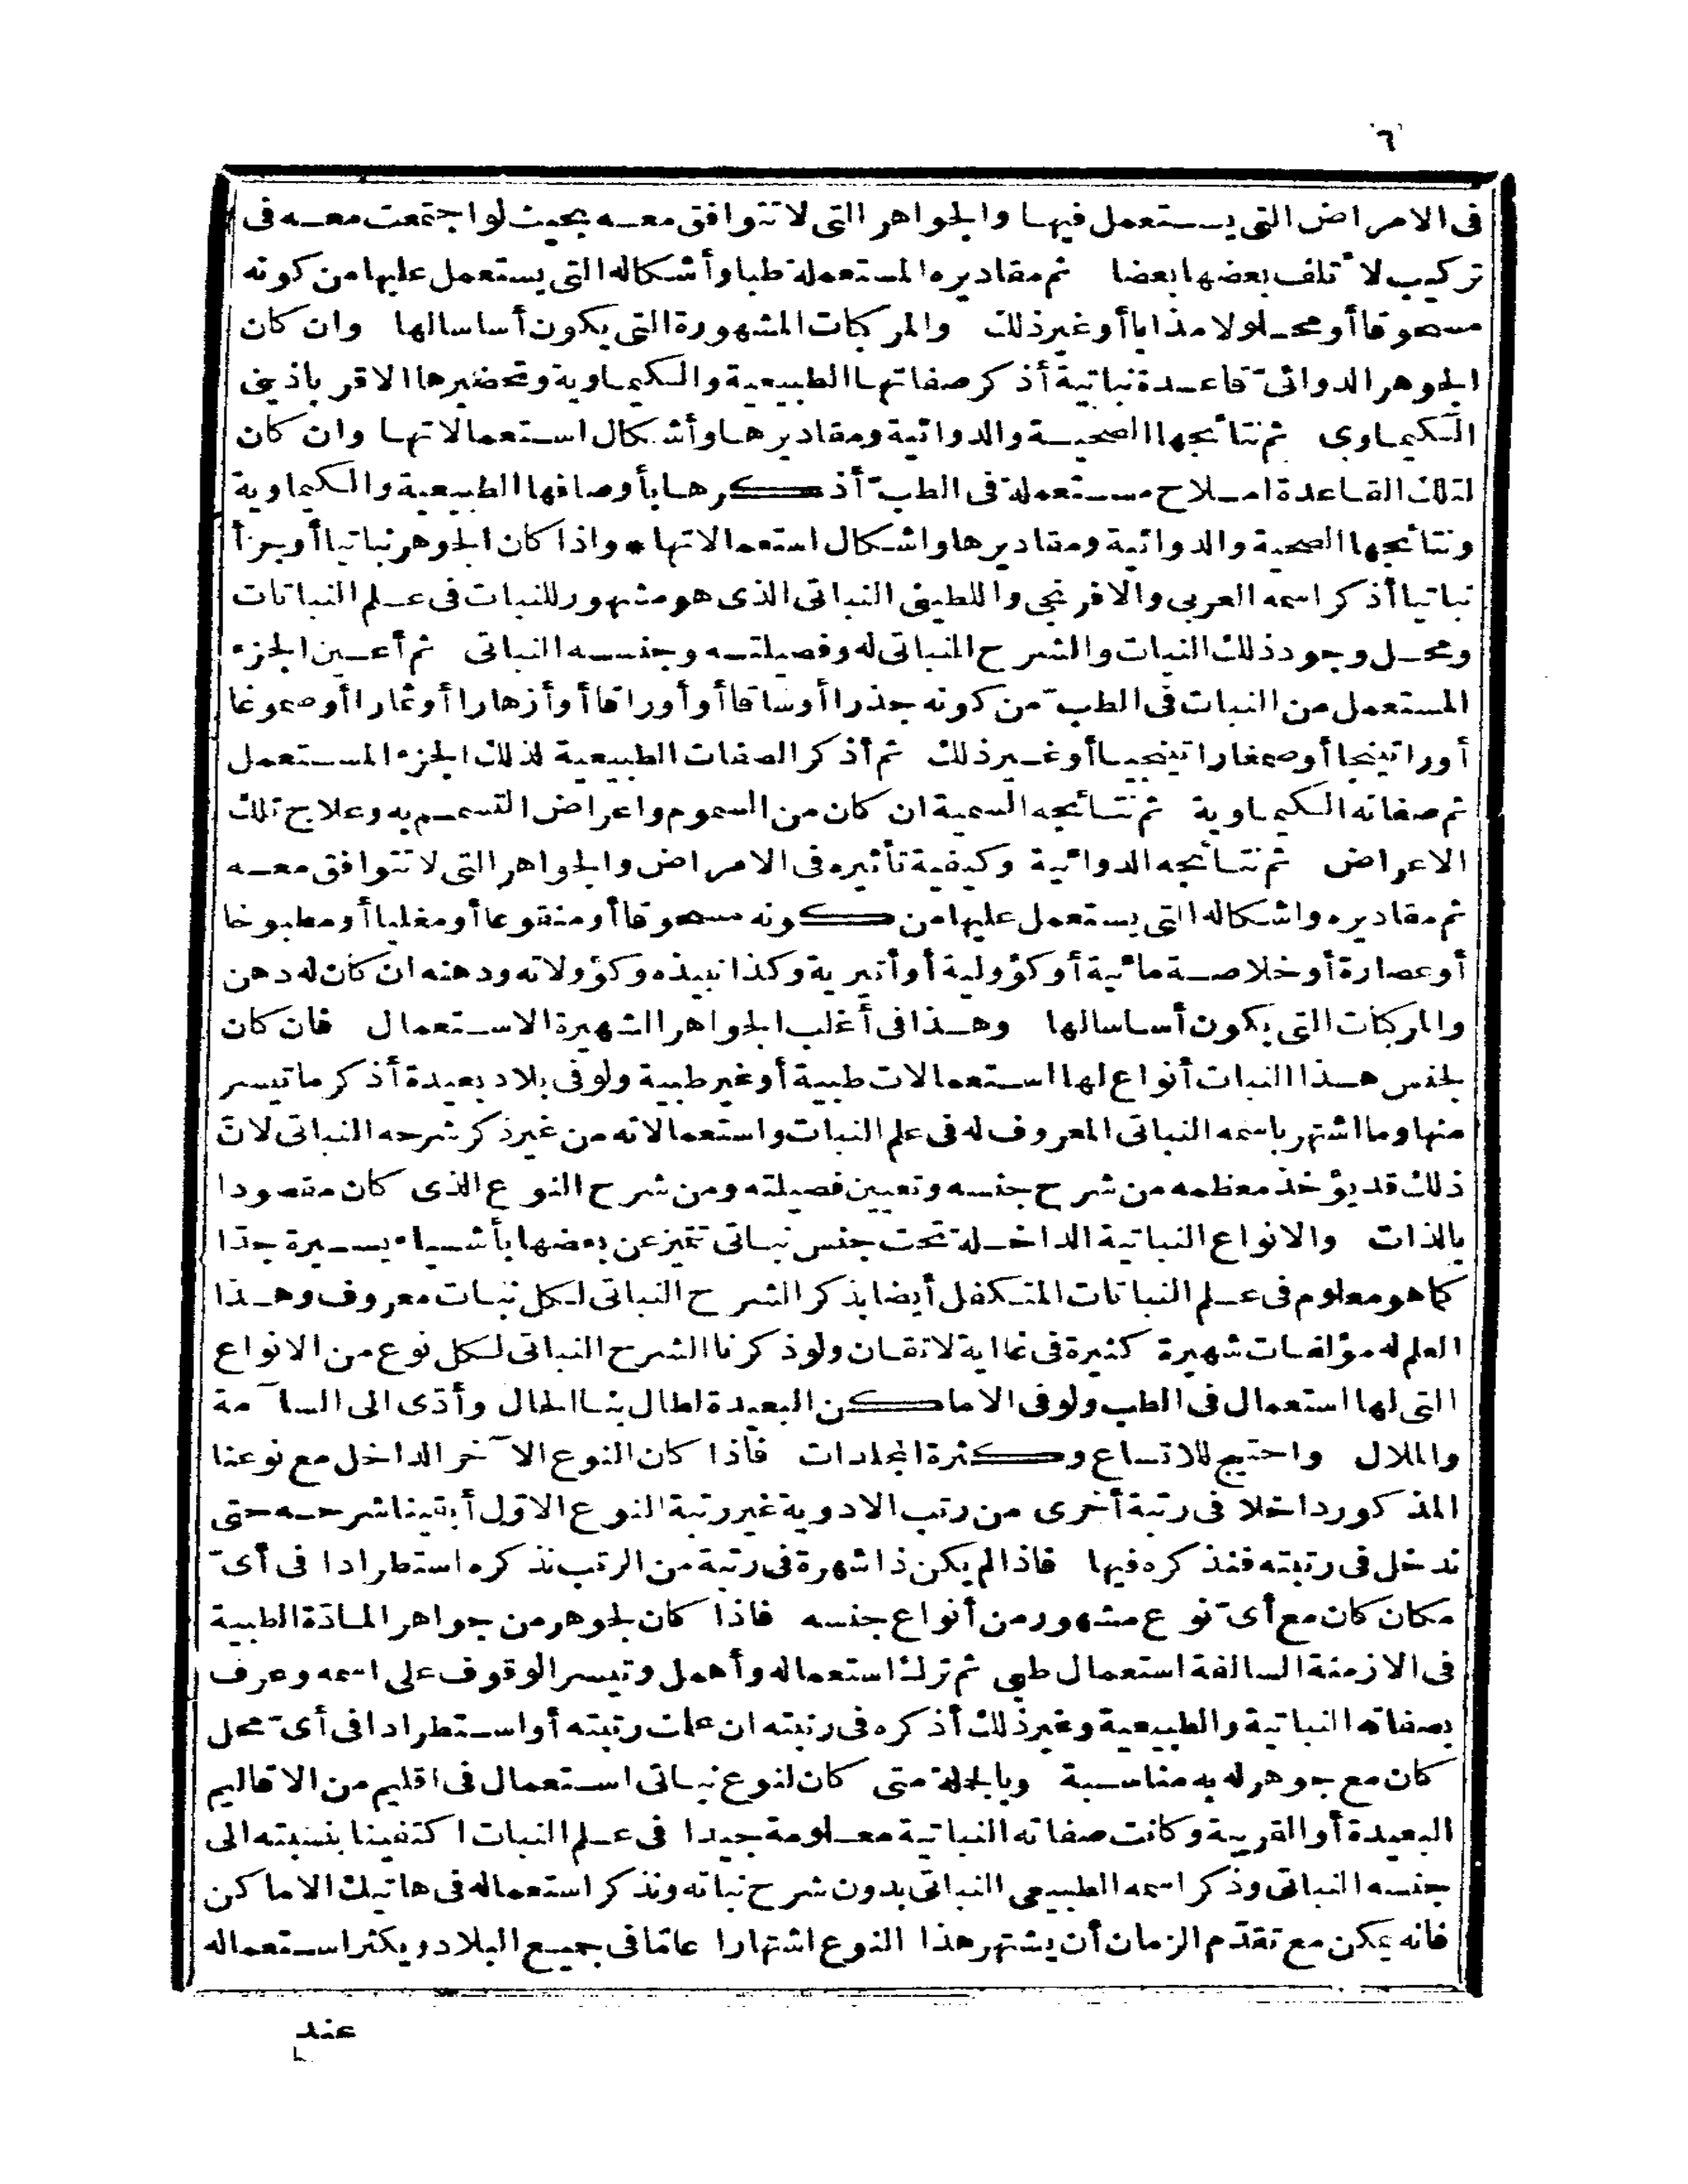 ٦
فى الامراض التى يستعمل فيها والجواهر التى لا تتوافق معه بحيث لو اجتمعت معه فى
تركيب لا تلف بعضها بعضا ثم مقاديره المستعملة طبا وأشكاله التى يستعمل عليها من كونه
مسحوقا أو محلولا مذابا أو غير ذلك والمركبات المشهورة التى يكون أساسا لها وان كان
الجوهر الدوائى قاعدة نباتية أذكر صفاتها الطبيعية والكيماوية وتحضيرها الاقرباذينى
الكيماوى ثم نتائجها الصحية والدوائية ومقاديرها وأشكال استعمالاتها وان كان
لتلك القاعدة املاح مستعملة فى الطب أذكرها بأوصافها الطبيعية والكيماوية
ونتائجها الصحية والدوائية ومقاديرها واشكال استعمالاتها * واذا كان الجوهر نباتيا أو جزأ
نباتيا أذكر اسمه العربى والافرنجى واللطينى النباتى الذى هو مشهور للنبات فى علم النباتات
ومحل وجود ذلك النبات والشرح النباتى له وفصيلته وجنسه النباتى ثم أعين الجزء
المستعمل من النبات فى الطب من كونه جذرا أو ساقا أو أوراقا أو أزهارا أو ثمارا أو صموغا
أو راتينجا أو صمغا راتينجيا أو غير ذلك ثم أذكر الصفات الطبيعية لذلك الجزء المستعمل
ثم صفاته الكيماوية ثم نتائجه السمية ان كان من السموم واعراض التسمم به وعلاج تلك
الاعراض ثم نتائجه الدوائية وكيفية تأثيره فى الامراض والجواهر التى لا تتوافق معه
ثم مقاديره واشكاله التى يستعمل عليها من كونه مسحوقا أو منقوعا أو مغليا أو مطبوخا
أو عصارة أو خلاصة مائية أو كؤولية أو أتيرية وكذا نبيذه وكؤولاته ودهنه ان كان له دهن
والمركبات التى يكون أساسا لها وهذا فى أغلب الجواهر الشهيرة الاستعمال فان كان
لجنس هذا النبات أنواع لها استعمالات طبية أو غير طبية ولو فى بلاد بعيدة أذكر ما تيسر
منها وما اشتهر باسمه النباتى المعروف له فى علم النبات واستعمالاته من غير ذكر شرحه النباتى لان
ذلك قد يؤخذ معظمه من شرح جنسه وتعيين فصيلته ومن شرح النوع الذى كان مقصودا
بالذات والانواع النباتية الداخلة تحت جنس نباتى تتميز عن بعضها بأشياء يسيرة جدا
كما هو معلوم فى علم النباتات المتكفل أيضا بذكر الشرح النباتى لكل نبات معروف وهذا
العلم له مؤلفات شهيرة كثيرة فى غاية لاتقان ولو ذكرنا الشرح النباتى لكل نوع من الانواع
التى لها استعمال فى الطب ولو فى الاماكن البعيدة لطال بنا الحال وأدّى الى السآمة
والملال واحتيج للاتساع وكثرة المجلدات فاذا كان النوع الآخر الداخل مع نوعنا
المذكور داخلا فى رتبة أخرى من رتب الادوية غير رتبة النوع الاوّل أبقينا شرحه حتى
ندخل فى رتبته فنذكره فيها فاذا لم يكن ذا شهرة فى رتبة من الرتب نذكره استطرادا فى أىّ
مكان كان مع أىّ نوع مشهور من أنواع جنسه فاذا كان لجوهر من جواهر المادّة الطبية
فى الازمنة السالفة استعمال طبى ثم ترك استعماله وأهمل وتيسر الوقوف على اسمه وعرف
بصفاته النباتية والطبيعية وغير ذلك أذكره فى رتبته ان علمت رتبته أو استطرادا فى أىّ محل
كان مع جوهر له به مناسبة وبالجملة متى كان لنوع نباتى استعمال فى اقليم من الاقاليم
البعيدة أو القريبة وكانت صفاته النباتية معلومة جيدا فى علم النبات اكتفينا بنسبته الى
جنسه النباتى وذكر اسمه الطبيعى النباتى بدون شرح نباته ونذكر استعماله فى هاتيك الاماكن
فانه يمكن مع تقدّم الزمان أن يشتهر هذا النوع اشتهارا عامّا فى جميع البلاد ويكثر استعماله
عند